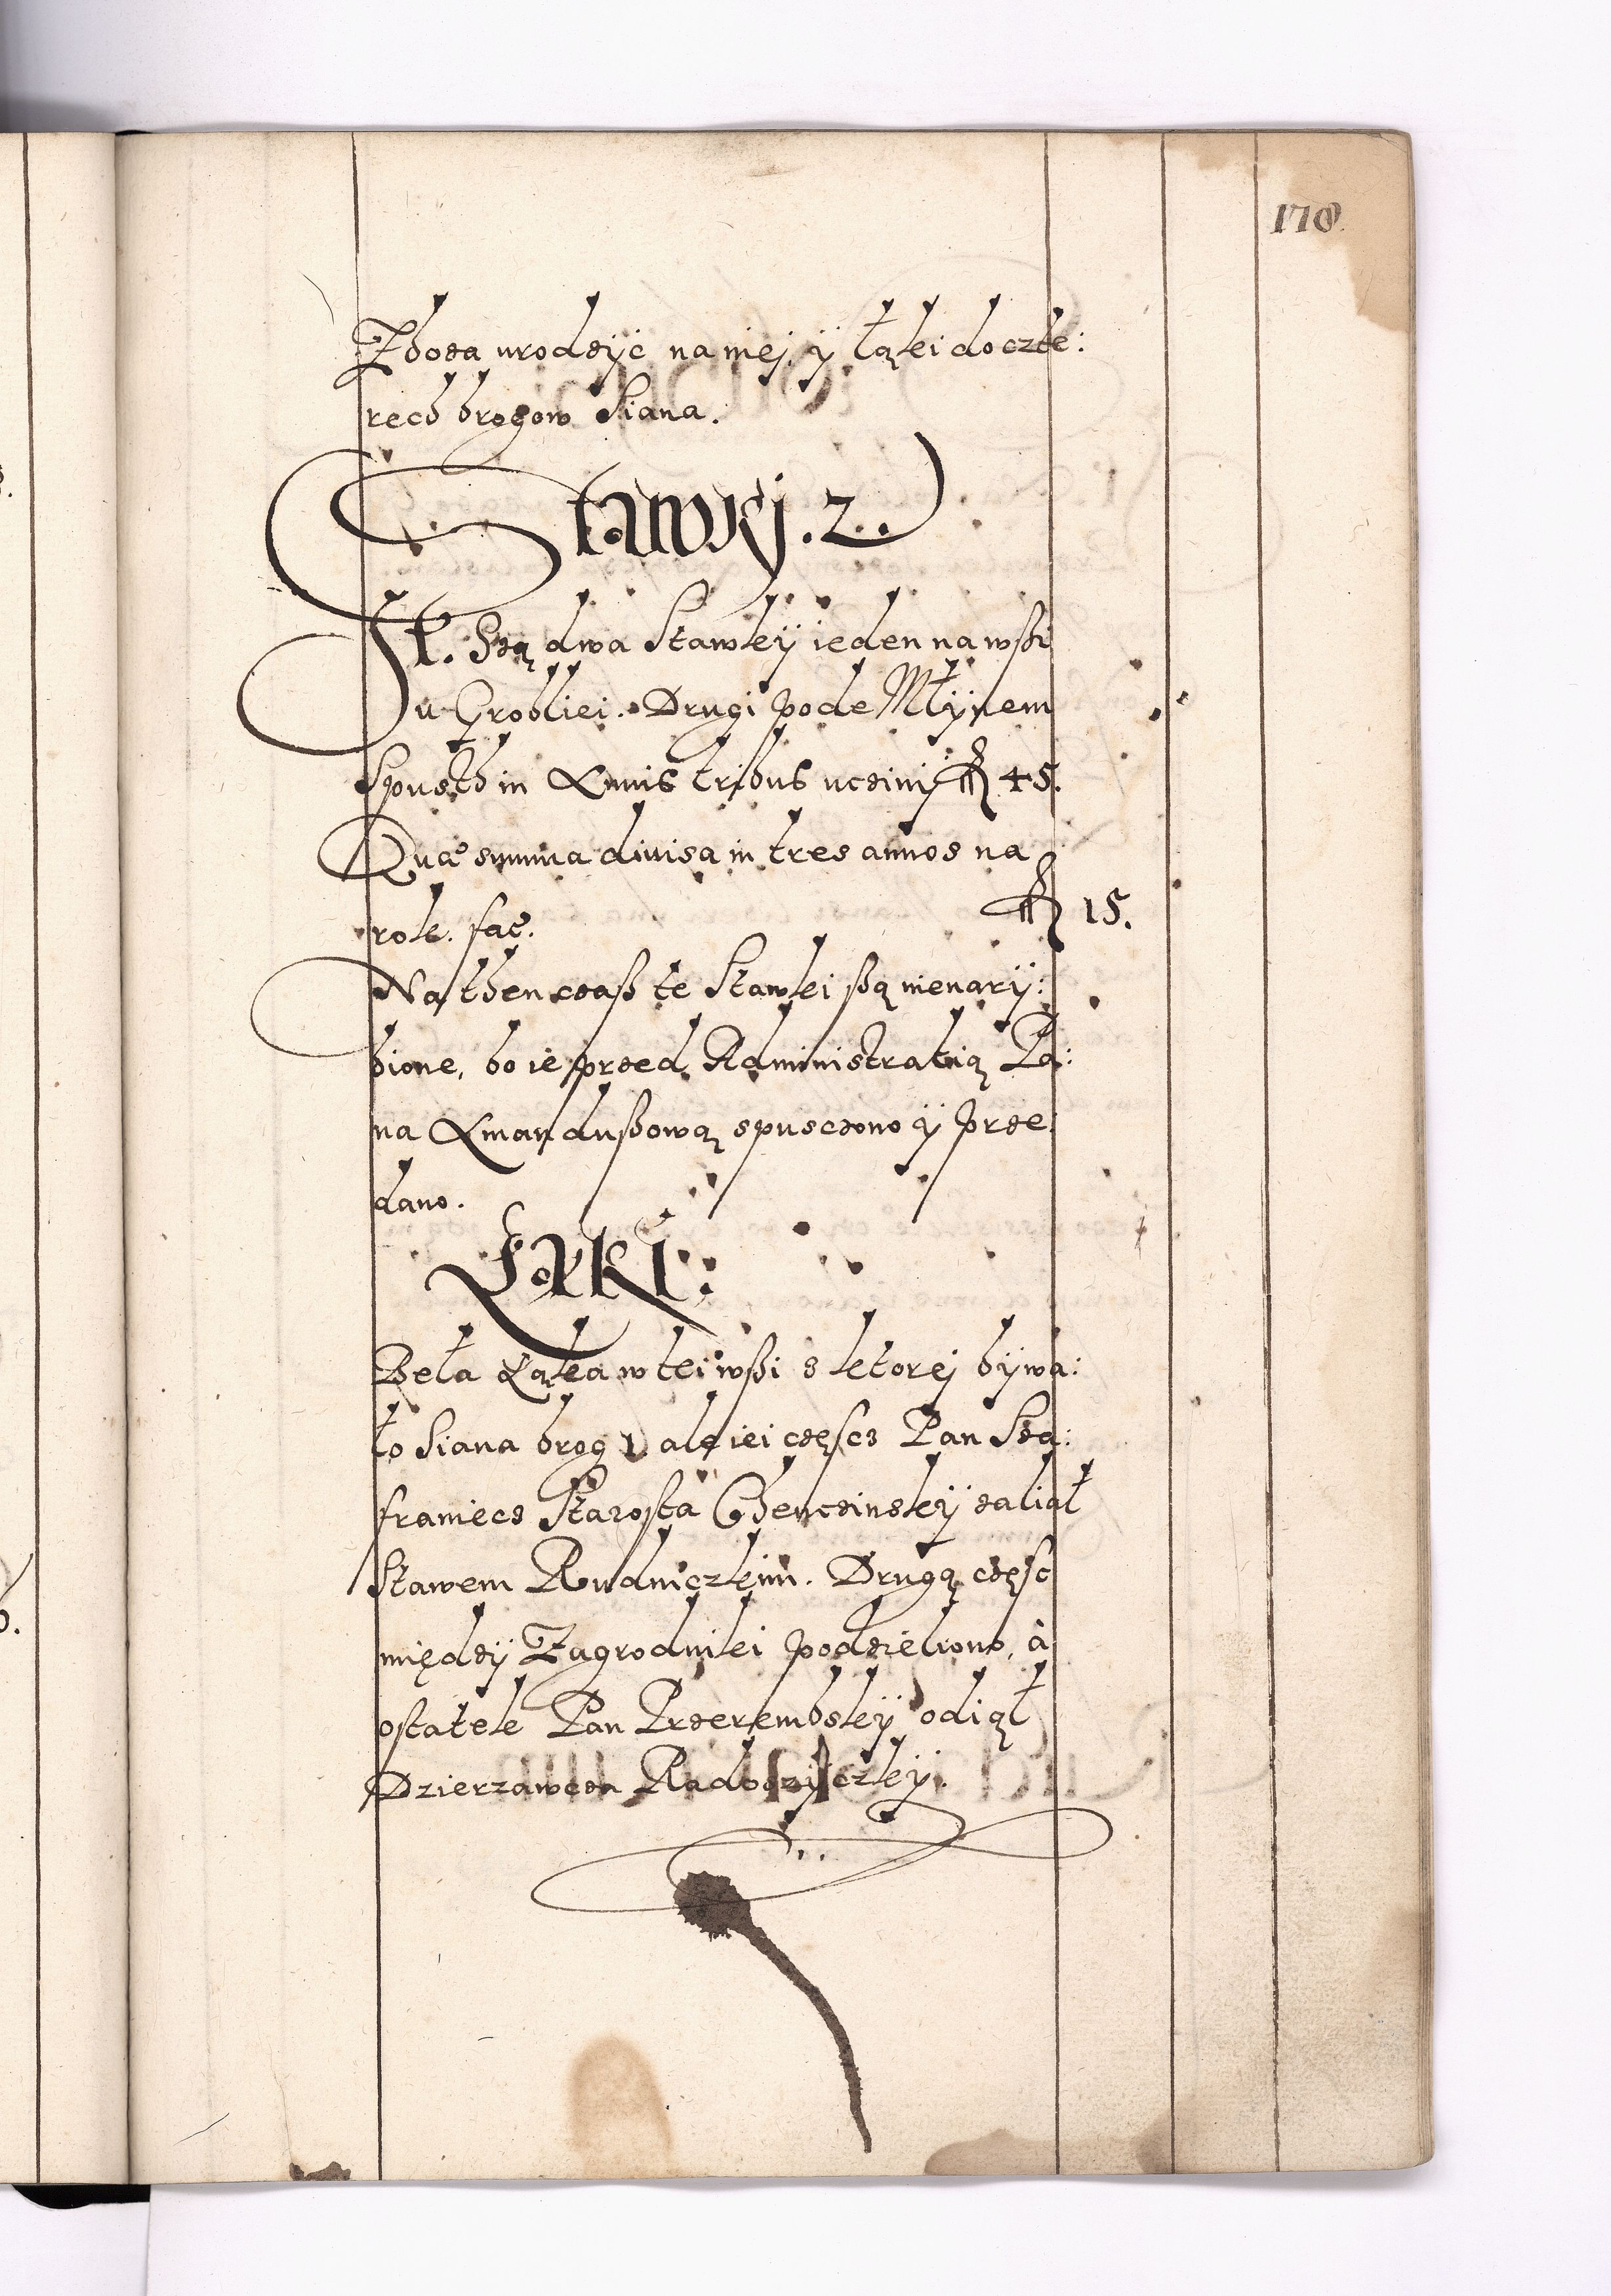 178
Zboza urodzÿc na niej ÿ łąki do czte:
rech brogow Siana.
Stawkj. 2.
It. Szą dwa Stawkÿ ieden na wßi
u Grobliei. Drugi pode Młÿnem
Spusth in Annis tribus uczini fl 45.
Quae summa diuisa in tres annos na
rok. fac. fl 15.
Na then czaß te Stawki ßą nienarÿ:
bione, bo ie przed Administratią Pa:
na Amandußową spusczono ÿ prze
dano.
ŁąKI:
Beła Łąka w tei wßi z ktorej bÿwa:
ło Siana brog 1 ale iei częscz Pan Sza:
franiecz Starosta Chenczinskÿ zaliał
Stawem Rudniczkim. Drugą częsc
międzÿ Zagrodniki podzielono, à
ostatek Pan Przerembskÿ odiął
Dzierzawcza Radoszÿczkÿ.